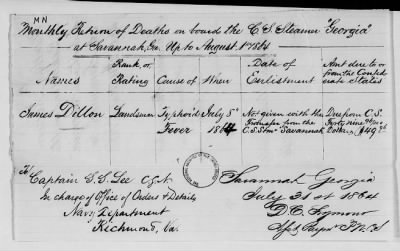 MN
Monthly Return of Deaths on board the C.S. Steamer "Georgia"
at Savannah, Geo. Up to August 1st 1864
Names Rank or Rating Cause of When Date of Enlistment Amt due to or from the Confederate States
James Dillon Landsman Typhoid Fever July 5th 1864 Not given with the from the C.S. Stmr Savannah Due from C.S. Forty nine Dollars $49
To Captain S. S. Lee C.S.N.
In charge of Office of Orders & Details
Navy Department
Richmond, Va.
Savannah Georgia
July 31st 1864
D. C. Seymour